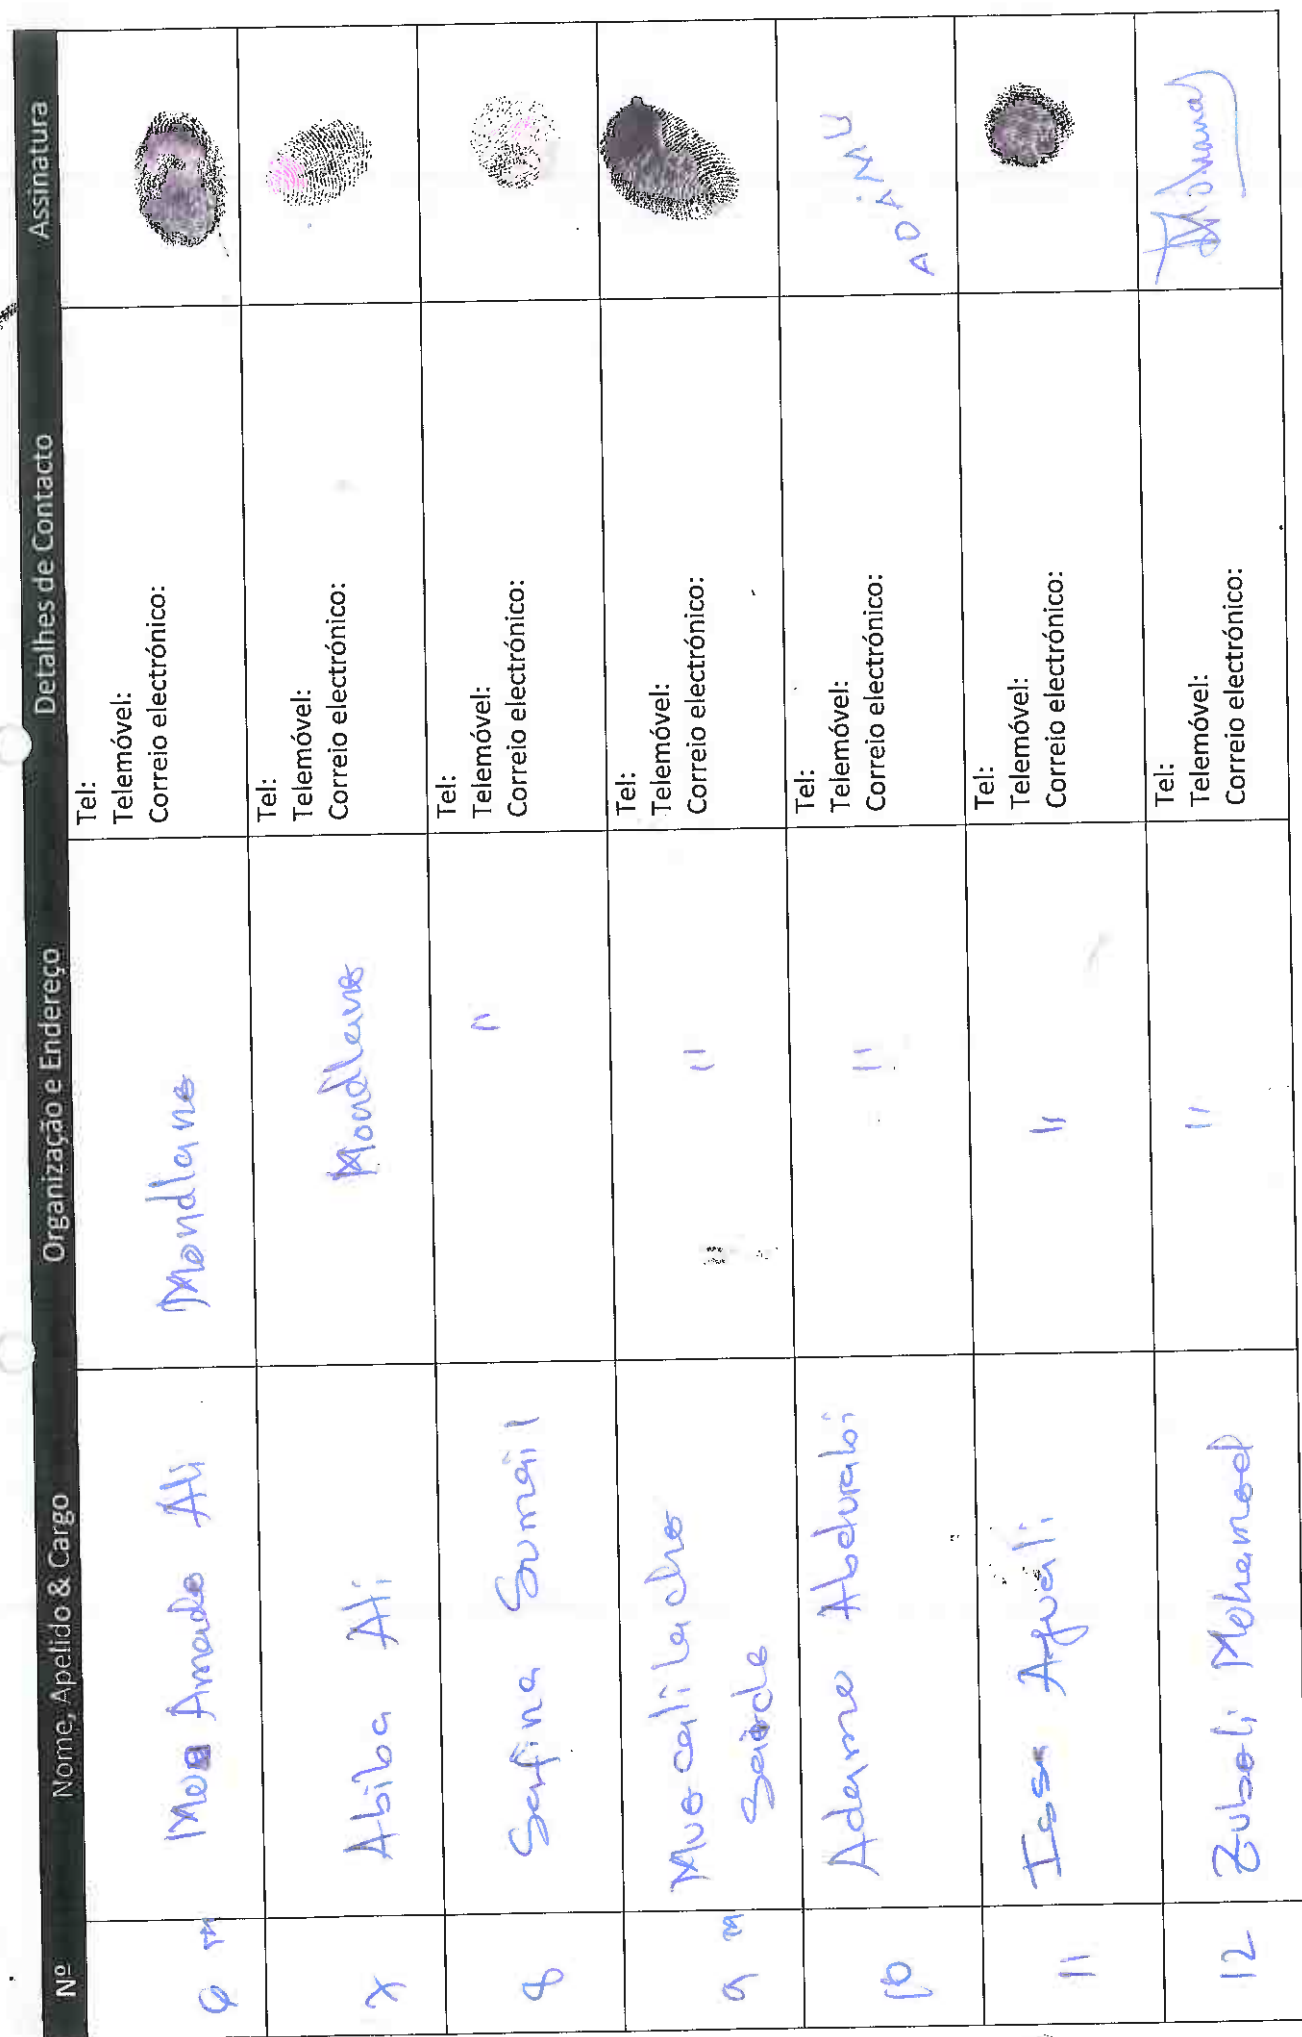 Nº Nome, Apelido & Cargo Organização e Endereço Detalhes de Contacto Assinatura
6 Amade Ali Mondlane Tel:
Telemóvel:
Correio electrónico:
7 Abiba Ali Mondlane Tel:
Telemóvel:
Correio electrónico:
8 Safina Sumail 11 Tel:
Telemóvel:
Correio electrónico:
9 Saide 11 Tel:
Telemóvel:
Correio electrónico:
10 Adamo Abdurabi 11 Tel:
Telemóvel:
Correio electrónico:
ADAMU
11 Issa 11 Tel:
Telemóvel:
Correio electrónico:
12 Mohamed 11 Tel:
Telemóvel:
Correio electrónico: